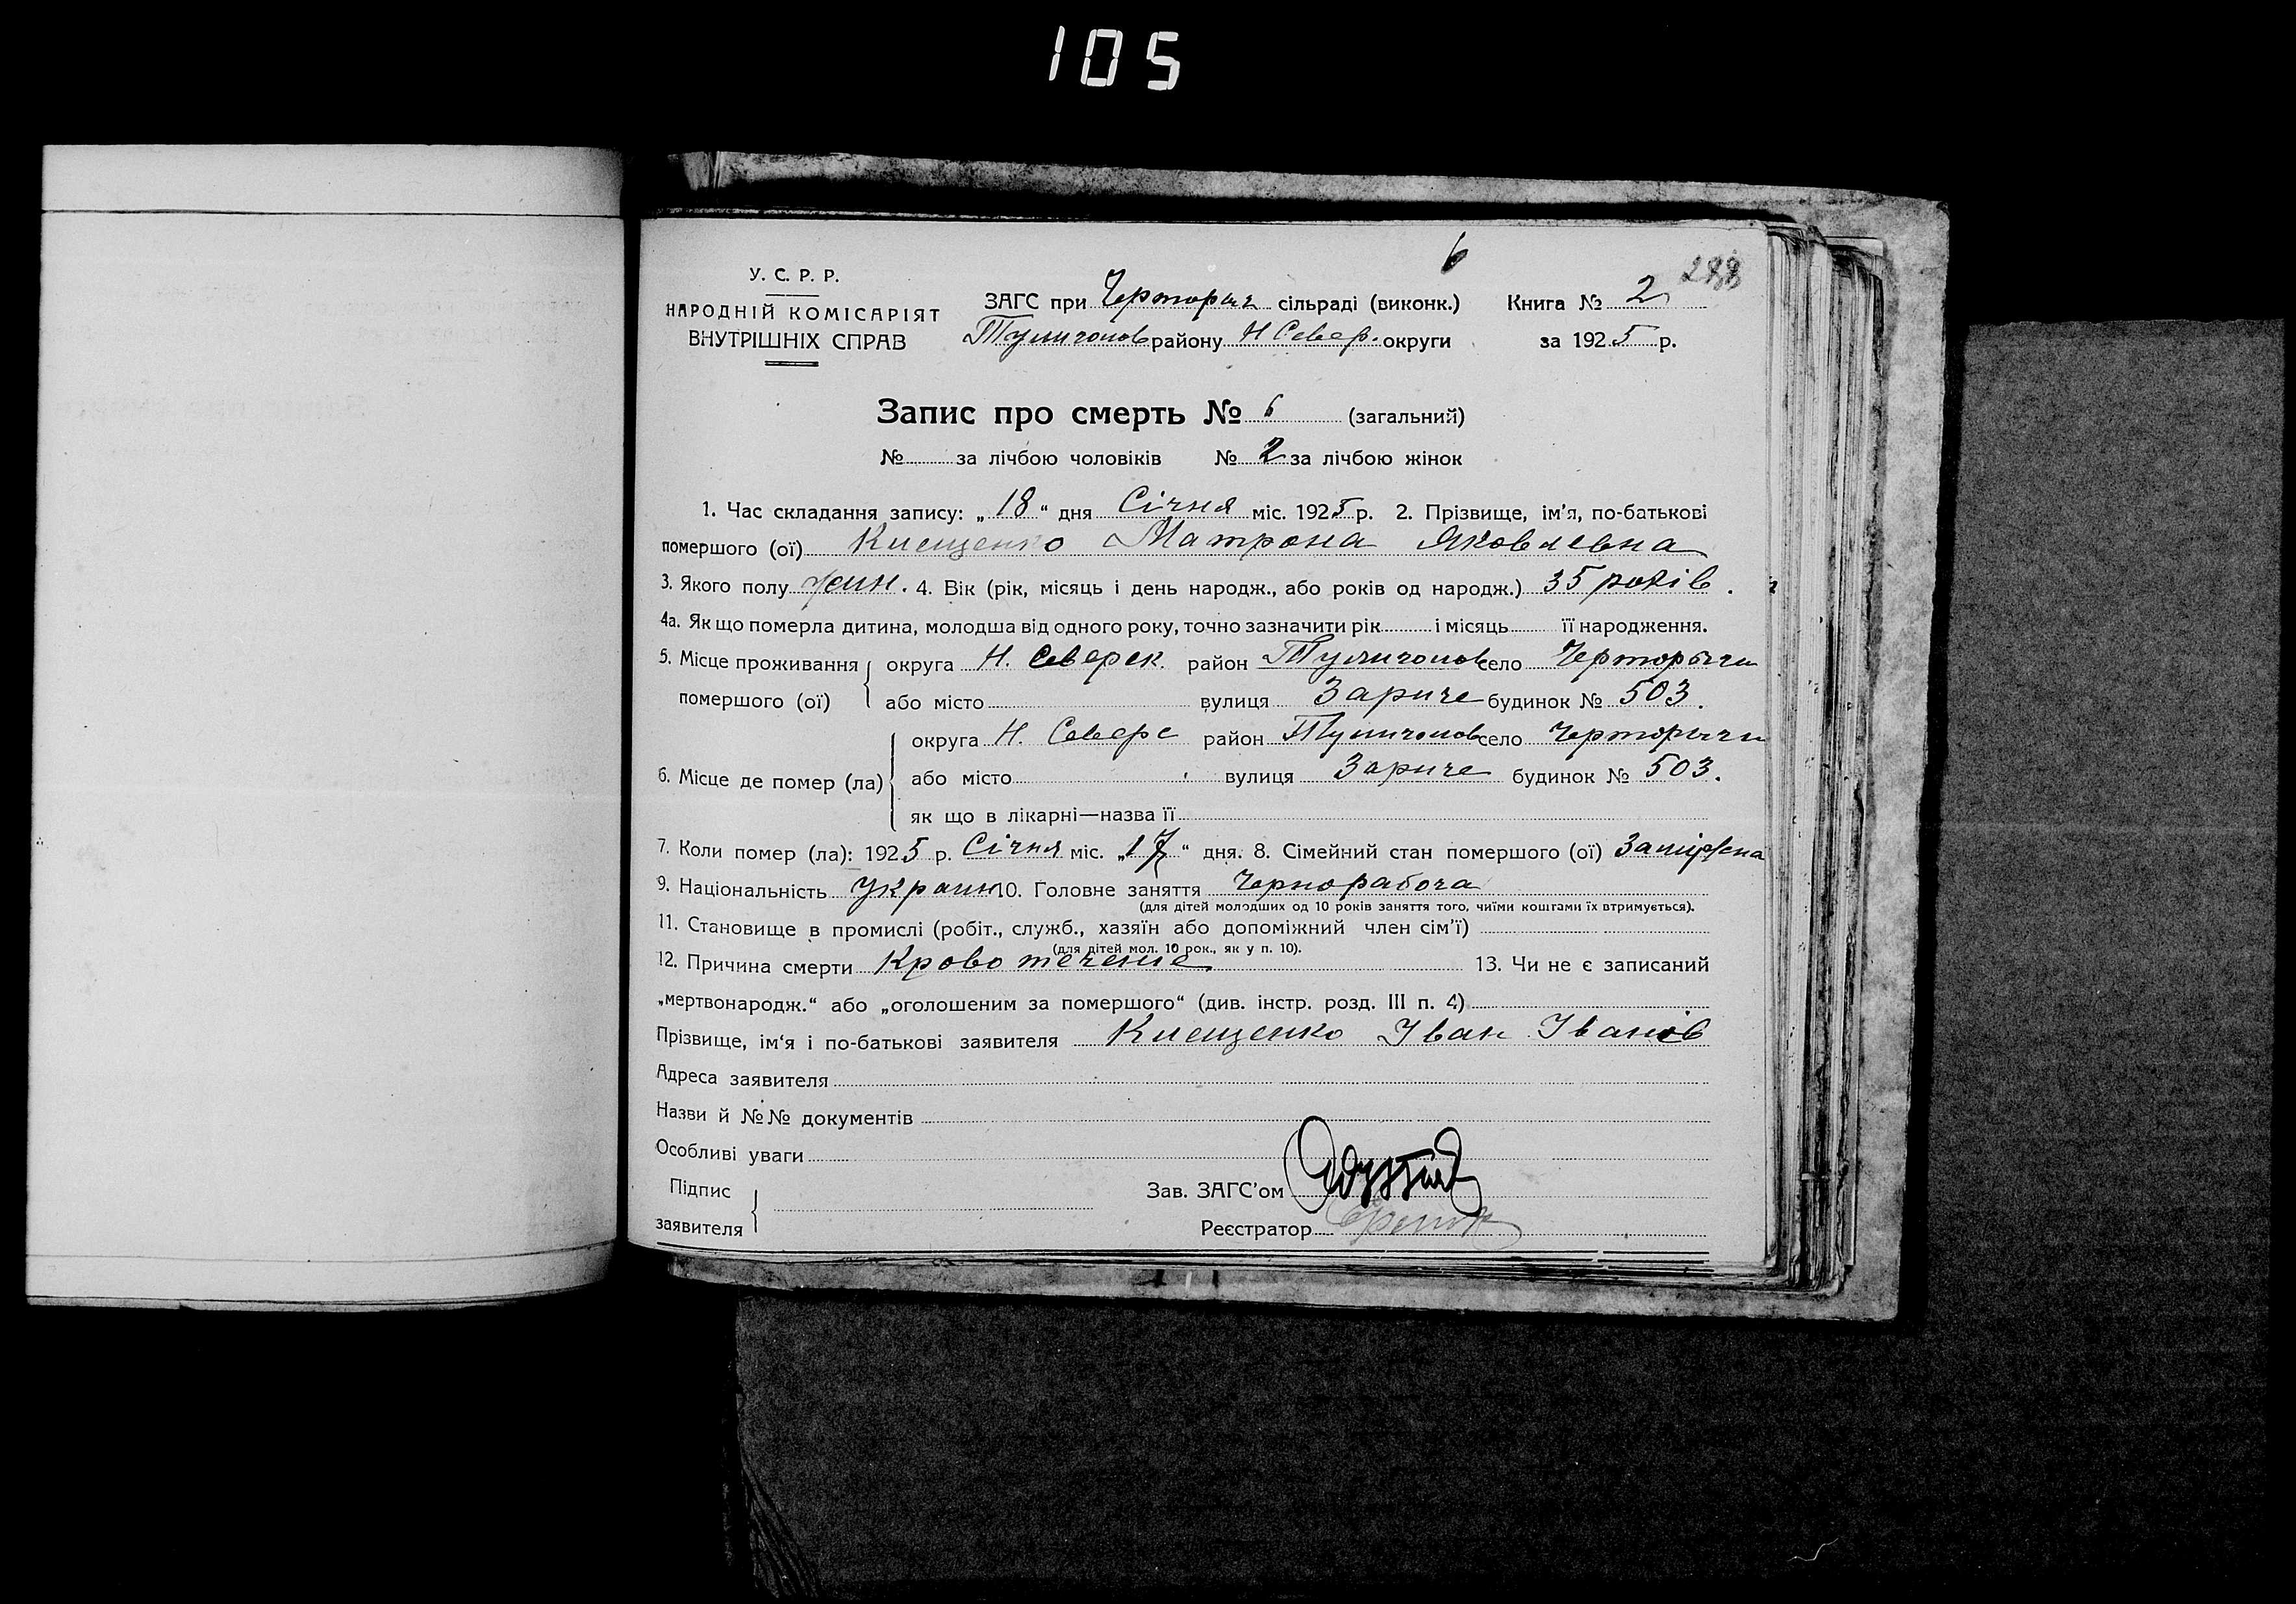 105
6
288
У. С. Р. Р.
НАРОДНІЙ КОМІСАРІЯТ
ВНУТРІШНІХ СПРАВ
ЗАГС при Черториг. сільраді (виконк.) Книга № 2
Туличолов району Н Север. округи за 1925 р.
Запис про смерть № 6 (загальний)
№ за лічбою чоловіків № 2 за лічбою жінок
1. Час складання запису: „18“ дня Січня міс. 1925 р. 2. Прізвище, ім’я, по-батькові
помершого (ої) Киещенко Матрона Яковлевна
3. Якого полу жин. 4. Вік (рік, місяць і день народж., або років од народж.) 35 років.
4а. Як що померла дитина, молодша від одного року, точно зазначити рік і місяць її народження.
5. Місце проживання округа Н. Северск. район село Черторыги
помершого (ої) або місто вулиця Зариче будинок № 503.
округа Н. Северс район село Черторыги
6. Місце де помер (ла) або місто вулиця Зариче будинок № 503.
як що в лікарні—назва її
7. Коли помер (ла): 1925 р. Січня міс. „17“ дня. 8. Сімейний стан помершого (ої) Заміжена
9. Національність Украин 10. Головне заняття Чернорабоча
(для дітей молодших од 10 років заняття того, чиїми коштами їх втримується).
11. Становище в промислі (робіт., служб., хазяїн або допоміжний член сім’ї)
(для дітей мол. 10 рок., як у п. 10).
12. Причина смерти Крово течение 13. Чи не є записаний
„мертвонародж.“ або „оголошеним за помершого“ (див. інстр. розд. III п. 4)
Прізвище, ім‘я і по-батькові заявителя Киещенко Іван Іванов
Адреса заявителя
Назви й №№ документів
Особливі уваги
Підпис
заявителя
Зав. ЗАГС’ом
Реєстратор